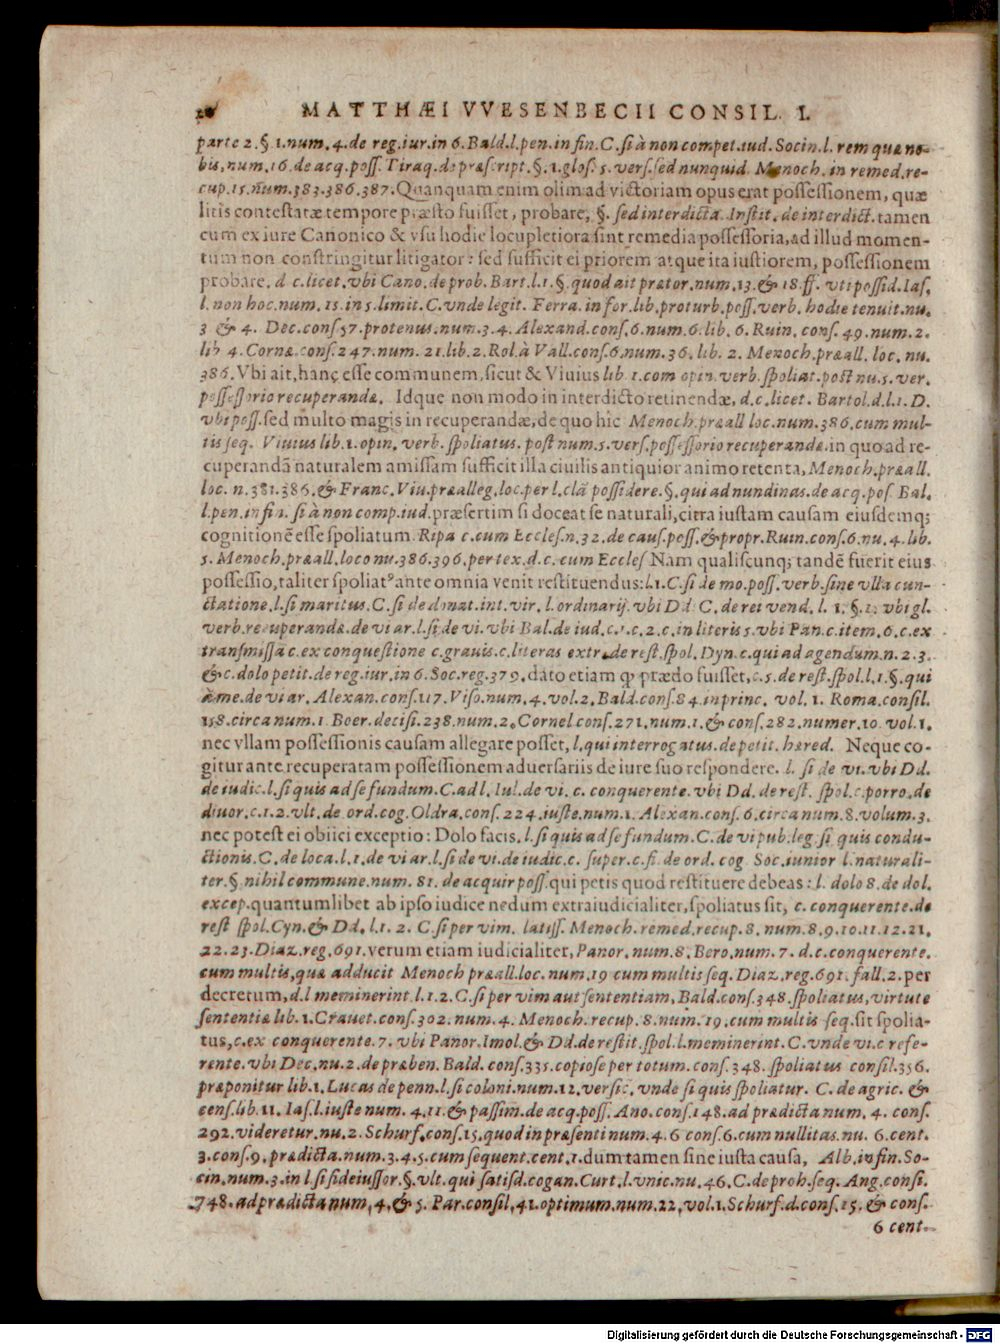 MATTHÆI VVESENBECII CONSIL. I.
parte 2. §. 1. num. 4. de reg. iur. in 6. Bald. l. pen. in fin. C. si à non compet. iud. Socin. l. rem quæ no-
bis, num. 16. de acq. poss. Tiraq. de præscript. §. 1. glos. 5. vers. sed nunquid. Menoch. in remed. re-
cup. 15. num. 383. 386. 387. Quanquam enim olim ad victoriam opus erat possessionem, quæ
litis contestatæ tempore præsto fuisset, probare, §. sed interdicta. Instit. de interdict. tamen
cum ex iure Canonico & vsu hodie locupletiora sint remedia possessoria, ad illud momen-
tum non constringitur litigator: sed sufficit ei priorem atque ita iustiorem, possessionem
probare. d c. licet. vbi Cano. de prob. Bart. l. 1. §. quod ait prætor. num. 13. & 18. ff. vti possid. Ias.
l. non hoc. num. 15. in 5. limit. C. vnde legit. Ferra. in for. lib. pro turb. poss. verb. hodie tenuit. nu.
3 & 4. Dec. cons. 57. protenus. num. 3. 4. Alexand. cons. 6. num. 6. lib. 6. Ruin. cons. 49. num. 2.
lib 4. Cornæ. cons. 247. num. 21. lib. 2. Rol. à Vall. cons. 6. num. 36. lib. 2. Menoch. præall. loc. nu.
386. Vbi ait, hanc esse communem, sicut & Viuius lib. 1. com opin. verb. spoliat. post nu. 5. ver.
possessorio recuperandæ. Idque non modo in interdicto retinendæ, d. c. licet. Bartol. d. l. 1. D.
vti poss. sed multo magis in recuperandæ, de quo hic Menoch. præall loc. num. 386. cum mul-
tis seq. Viuius lib. 1. opin. verb. spoliatus. post num. 5. vers. possessorio recuperandæ. in quo ad re-
cuperandã naturalem amissam sufficit illa ciuilis antiquior animo retenta, Menoch. præall.
loc. n. 381. 386. & Franc. Viu. præalleg. loc. per l. clã possidere. §. qui ad nundinas. de acq. pos. Bal.
l. pen. in fin. si à non comp. iud. præsertim si doceat se naturali, citra iustam causam eiusdemq;
cognitionẽ esse spoliatum. Ripa c. cum Eccles. n. 32. de caus. poss. & propr. Ruin. cons. 6. nu. 4. lib.
5. Menoch. præall. loco nu. 386. 396. per tex. d. c. cum Eccles Nam qualiscunq; tandẽ fuerit eius
possessio, taliter spoliatꝰ ante omnia venit restituendus: l. 1. C. si de mo. poss. verb. sine vlla cun-
ctatione. l. si maritus. C. si de donat. int. vir. l. ordinarij. vbi Dd. C. de rei vend. l. 1. §. 1. vbi gl.
verb. recuperandæ. de vi ar. l. si de vi. vbi Bal. de iud. c. 1. c. 2. c. in literis 5. vbi Pan. c. item. 6. c. ex
transmissa c. ex conquestione c. grauis. c. literas extr. de rest. spol. Dyn. c. qui ad agendum. n. 2. 3.
& c. dolo petit. de reg. iur. in 6. Soc. reg. 379. dato etiam ꝙ prædo fuisset, c. 5. de rest. spol. l. 1. §. qui
à me. de vi ar. Alexan. cons. 117. Viso. num. 4. vol. 2. Bald. cons. 84. in princ. vol. 1. Roma. consil.
158. circa num. 1 Boer. decisi. 238. num. 2. Cornel cons. 271. num. 1. & cons. 282. numer. 10. vol. 1.
nec vllam possessionis causam allegare posset, l. qui interrogatus. de petit. hæred. Neque co-
gitur ante recuperatam possessionem aduersariis de iure suo respondere. l. si de vi. vbi Dd.
de iudic. l. si quis ad se fundum. C. ad l. Iul. de vi. c. conquerente. vbi Dd. de rest. spol. c. porro. de
diuor. c. 1. 2. vlt. de ord. cog. Oldra. cons. 224. iuste. num. 1. Alexan. cons. 6. circa num. 8. volum. 3.
nec potest ei obiici exceptio: Dolo facis. l. si quis ad se fundum. C. de vi pub. leg. si quis condu-
ctionis. C. de loca. l. 1. de vi ar. l. si de vi. de iudic. c. super. c. fi. de ord. cog. Soc. iunior l. naturali-
ter. §. nihil commune. num. 81. de acquir poss. qui petis quod restituere debeas: l. dolo 8. de dol.
excep. quantumlibet ab ipso iudice nedum extraiudicialiter, spoliatus sit, c. conquerente. de
rest spol. Cyn. & Dd. l. 1. 2. C. si per vim. latiss. Menoch. remed. recup. 8. num. 8. 9. 10. 11. 12. 21.
22. 23. Diaz. reg. 691. verum etiam iudicialiter, Panor. num. 8. Bero. num. 7. d. c. conquerente.
cum multis, quæ adducit Menoch præall. loc. num. 19 cum multis seq. Diaz. reg. 691. fall. 2. per
decretum, d. l meminerint. l. 1. 2. C. si per vim aut sententiam, Bald. cons. 348. spoliatus, virtute
sententiæ lib. 1. Crauet. cons. 302. num. 4. Menoch. recup. 8. num. 19. cum multis seq. sit spolia-
tus, c. ex conquerente. 7. vbi Panor. Imol. & Dd. de restit. spol. l. meminerint. C. vnde vi. c refe-
rente. vbi Dec. nu. 2. de præben. Bald. cons. 335. copiose per totum. cons. 348. spoliatus consil. 356.
præponitur lib. 1. Lucas de penn. l. si coloni. num. 12. versic. vnde si quis spoliatur. C. de agric. &
cens. lib. 11. Ias. l. iuste num. 4. 11. & passim. de acq. poss. Ano. cons. 148. ad prædicta num. 4. cons.
292. videretur. nu. 2. Schurf. cons. 15. quod in præsenti num. 4. 6 cons. 6. cum nullitas. nu. 6. cent.
3. cons. 9. prædicta. num. 3. 4. 5. cum sequent. cent. 1. dum tamen sine iusta causa, Alb. in fin. So-
cin. num. 3. in l. si fideiussor. §. vlt. qui satisd. cogan. Curt. l. vnic. nu. 46. C. de proh. seq. Ang. consi.
748. ad prædicta num, 4. & 5. Par. consil, 41. optimum. num. 22, vol. 1. Schurf. d. cons. 15. & cons.
6 cent.
Digitalisierung gefördert durch die Deutsche Forschungsgemeinschaft - DFG